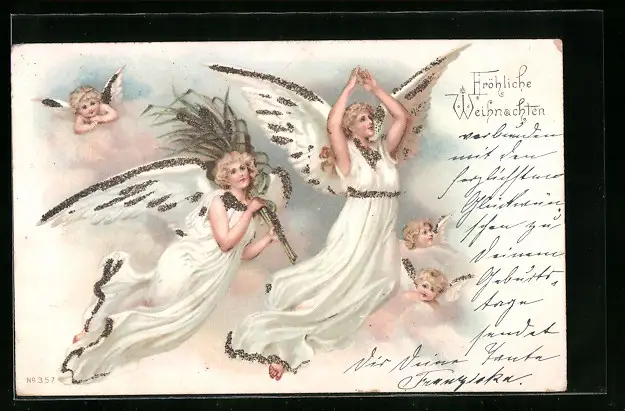 Fröhliche
Weihnachten
verbunden
mit den
herzlichsten
Glückwün
schen zu
Deinem
Geburts-
tage
sendet
Dir Deine Tante
Franziska.
No 357